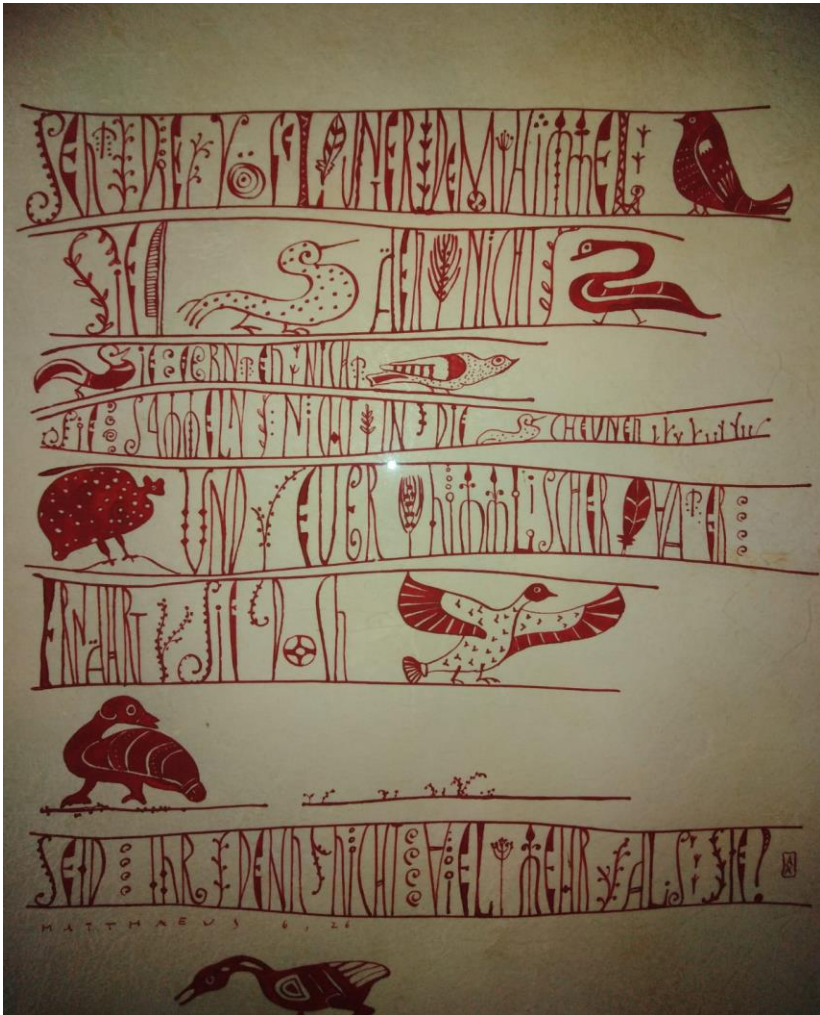 SEHT DIE VÖGEL UNTER DEM HIMMEL
SIE SÄEN NICHT
SIE ERNTEN NICHT
SIE SAMMELN NICHT IN DIE SCHEUNEN
UND EUER HIMMLISCHER VATER
ERNÄHRT SIE DOCH
SEID IHR DENN NICHT VIEL MEHR ALS SIE?
MATTHAEUS 6, 26